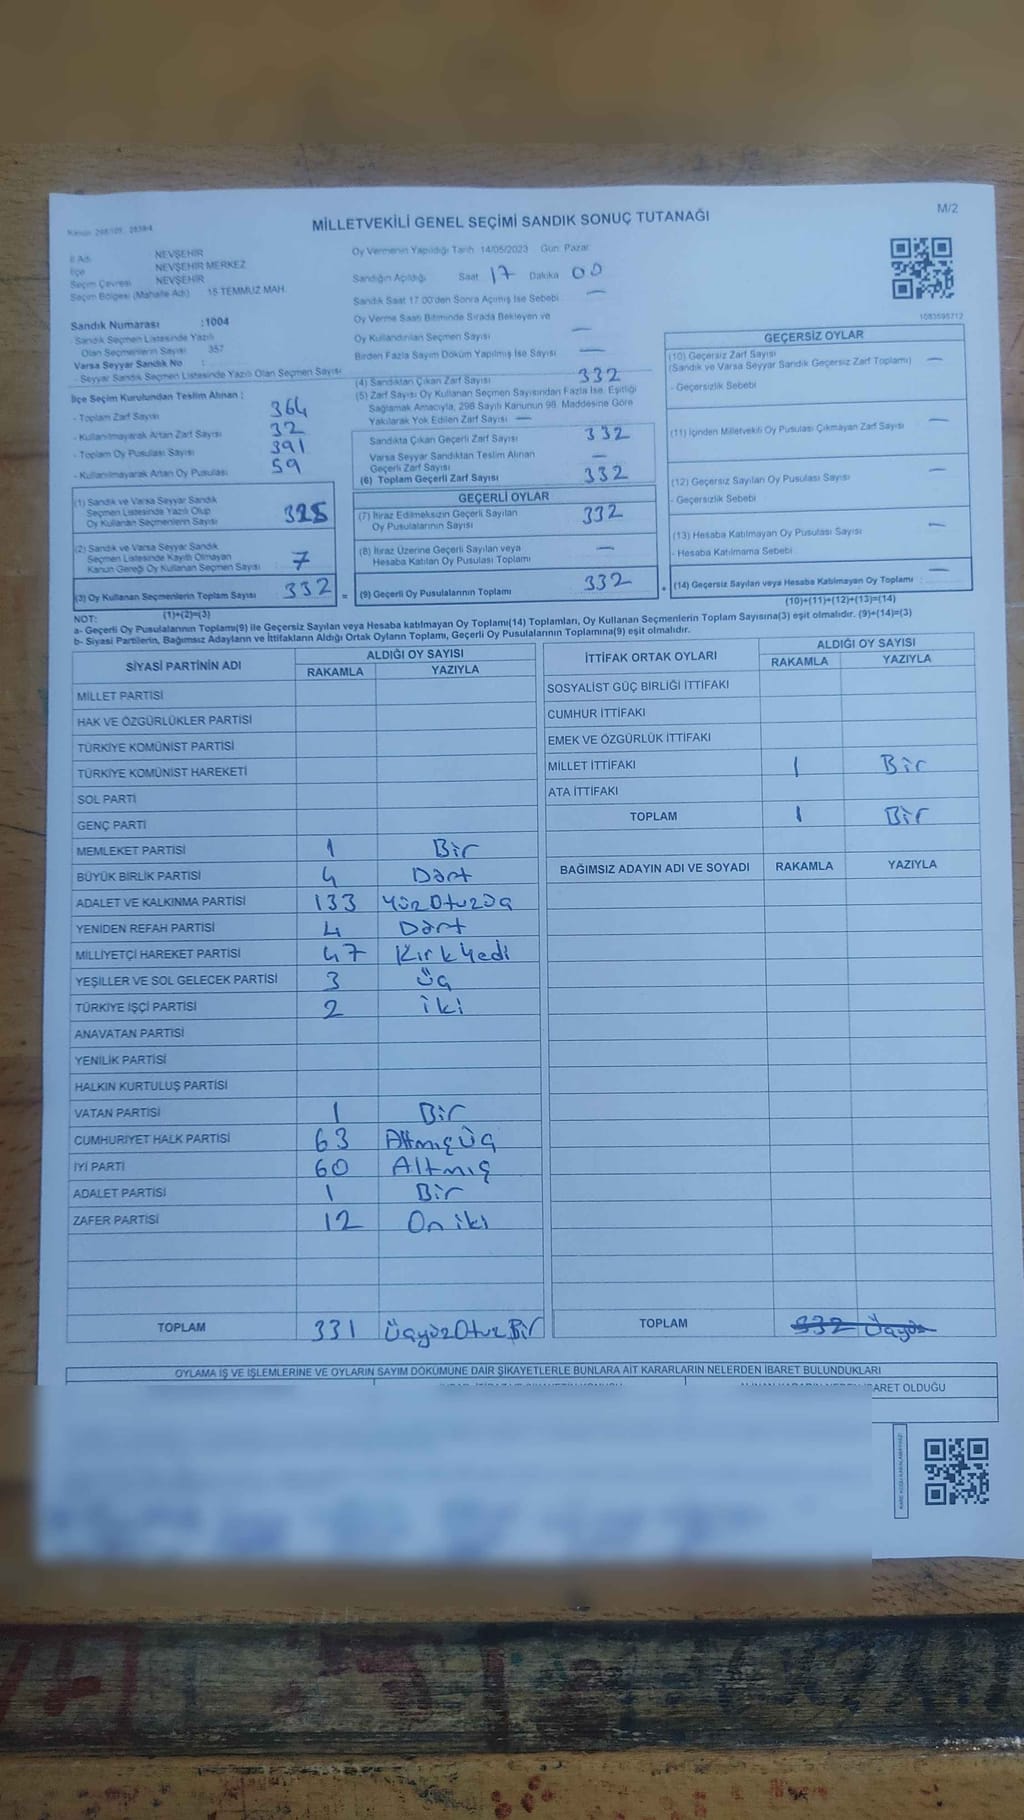 MİLLETVEKİLİ GENEL SEÇİMİ SANDIK SONUÇ TUTANAĞI
M/2
İl Adı NEVŞEHİR
İlçe NEVŞEHİR MERKEZ
Seçim Çevresi NEVŞEHİR
Seçim Bölgesi (Mahalle Adı) 15 TEMMUZ MAH.
Sandık Numarası :1004
Sandık Seçmen Listesinde Yazılı
Olan Seçmenlerin Sayısı 357
Varsa Seyyar Sandık No :
- Seyyar Sandık Seçmen Listesinde Yazılı Olan Seçmen Sayısı
İlçe Seçim Kurulundan Teslim Alınan :
- Toplam Zarf Sayısı 364
- Kullanılmayarak Artan Zarf Sayısı 32
- Toplam Oy Pusulası Sayısı 391
- Kullanılmayarak Artan Oy Pusulası 59
(1) Sandık ve Varsa Seyyar Sandık
Seçmen Listesinde Yazılı Olup
Oy Kullanan Seçmenlerin Sayısı 325
(2) Sandık ve Varsa Seyyar Sandık
Seçmen Listesinde Kayıtlı Olmayan
Kanun Gereği Oy Kullanan Seçmen Sayısı 7
(3) Oy Kullanan Seçmenlerin Toplam Sayısı 332 =
(1)+(2)=(3)
Oy Vermenin Yapıldığı Tarih 14/05/2023 Gün Pazar
Sandığın Açıldığı Saat 17 Dakika 00
Sandık Saat 17.00'den Sonra Açılmış İse Sebebi —
Oy Verme Saati Bitiminde Sırada Bekleyen ve
Oy Kullandırılan Seçmen Sayısı —
Birden Fazla Sayım Döküm Yapılmış İse Sayısı —
(4) Sandıktan Çıkan Zarf Sayısı 332
(5) Zarf Sayısı Oy Kullanan Seçmen Sayısından Fazla İse, Eşitliği
Sağlamak Amacıyla, 298 Sayılı Kanunun 98. Maddesine Göre
Yakılarak Yok Edilen Zarf Sayısı —
Sandıkta Çıkan Geçerli Zarf Sayısı 332
Varsa Seyyar Sandıktan Teslim Alınan
Geçerli Zarf Sayısı —
(6) Toplam Geçerli Zarf Sayısı 332
GEÇERLİ OYLAR
(7) İtiraz Edilmeksizin Geçerli Sayılan
Oy Pusulalarının Sayısı 332
(8) İtiraz Üzerine Geçerli Sayılan veya
Hesaba Katılan Oy Pusulası Toplamı —
(9) Geçerli Oy Pusulalarının Toplamı 332
1083598712
GEÇERSİZ OYLAR
(10) Geçersiz Zarf Sayısı
(Sandık ve Varsa Seyyar Sandık Geçersiz Zarf Toplamı) —
- Geçersizlik Sebebi
(11) İçinden Milletvekili Oy Pusulası Çıkmayan Zarf Sayısı —
(12) Geçersiz Sayılan Oy Pusulası Sayısı —
- Geçersizlik Sebebi
(13) Hesaba Katılmayan Oy Pusulası Sayısı —
- Hesaba Katılmama Sebebi
(14) Geçersiz Sayılan veya Hesaba Katılmayan Oy Toplamı —
(10)+(11)+(12)+(13)=(14)
NOT:
a- Geçerli Oy Pusulalarının Toplamı(9) ile Geçersiz Sayılan veya Hesaba katılmayan Oy Toplamı(14) Toplamları, Oy Kullanan Seçmenlerin Toplam Sayısına(3) eşit olmalıdır. (9)+(14)=(3)
b- Siyasi Partilerin, Bağımsız Adayların ve İttifakların Aldığı Ortak Oyların Toplamı, Geçerli Oy Pusulalarının Toplamına(9) eşit olmalıdır.
SİYASİ PARTİNİN ADI ALDIĞI OY SAYISI
RAKAMLA YAZIYLA
MİLLET PARTİSİ
HAK VE ÖZGÜRLÜKLER PARTİSİ
TÜRKİYE KOMÜNİST PARTİSİ
TÜRKİYE KOMÜNİST HAREKETİ
SOL PARTİ
GENÇ PARTİ
MEMLEKET PARTİSİ 1 Bir
BÜYÜK BİRLİK PARTİSİ 4 Dört
ADALET VE KALKINMA PARTİSİ 133 YüzOtuzüç
YENİDEN REFAH PARTİSİ 4 Dört
MİLLİYETÇİ HAREKET PARTİSİ 47 KırkYedi
YEŞİLLER VE SOL GELECEK PARTİSİ 3 Üç
TÜRKİYE İŞÇİ PARTİSİ 2 iki
ANAVATAN PARTİSİ
YENİLİK PARTİSİ
HALKIN KURTULUŞ PARTİSİ
VATAN PARTİSİ 1 Bir
CUMHURİYET HALK PARTİSİ 63 AltmışÜç
İYİ PARTİ 60 Altmış
ADALET PARTİSİ 1 Bir
ZAFER PARTİSİ 12 On iki
TOPLAM 331 ÜçyüzOtuzBir
İTTİFAK ORTAK OYLARI ALDIĞI OY SAYISI
RAKAMLA YAZIYLA
SOSYALİST GÜÇ BİRLİĞİ İTTİFAKI
CUMHUR İTTİFAKI
EMEK VE ÖZGÜRLÜK İTTİFAKI
MİLLET İTTİFAKI 1 Bir
ATA İTTİFAKI
TOPLAM 1 Bir
BAĞIMSIZ ADAYIN ADI VE SOYADI RAKAMLA YAZIYLA
TOPLAM 332 Üçyüz
OYLAMA İŞ VE İŞLEMLERİNE VE OYLARIN SAYIM DÖKÜMÜNE DAİR ŞİKAYETLERLE BUNLARA AİT KARARLARIN NELERDEN İBARET BULUNDUKLARI
İBARET OLDUĞU